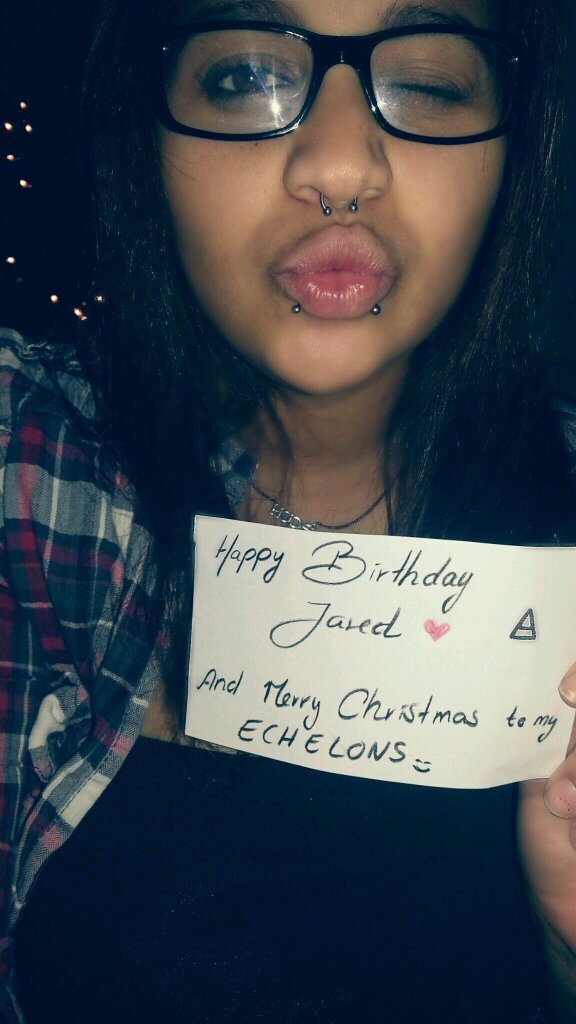 Happy Birthday
Jared
And Merry Christmas to my
ECHELONS